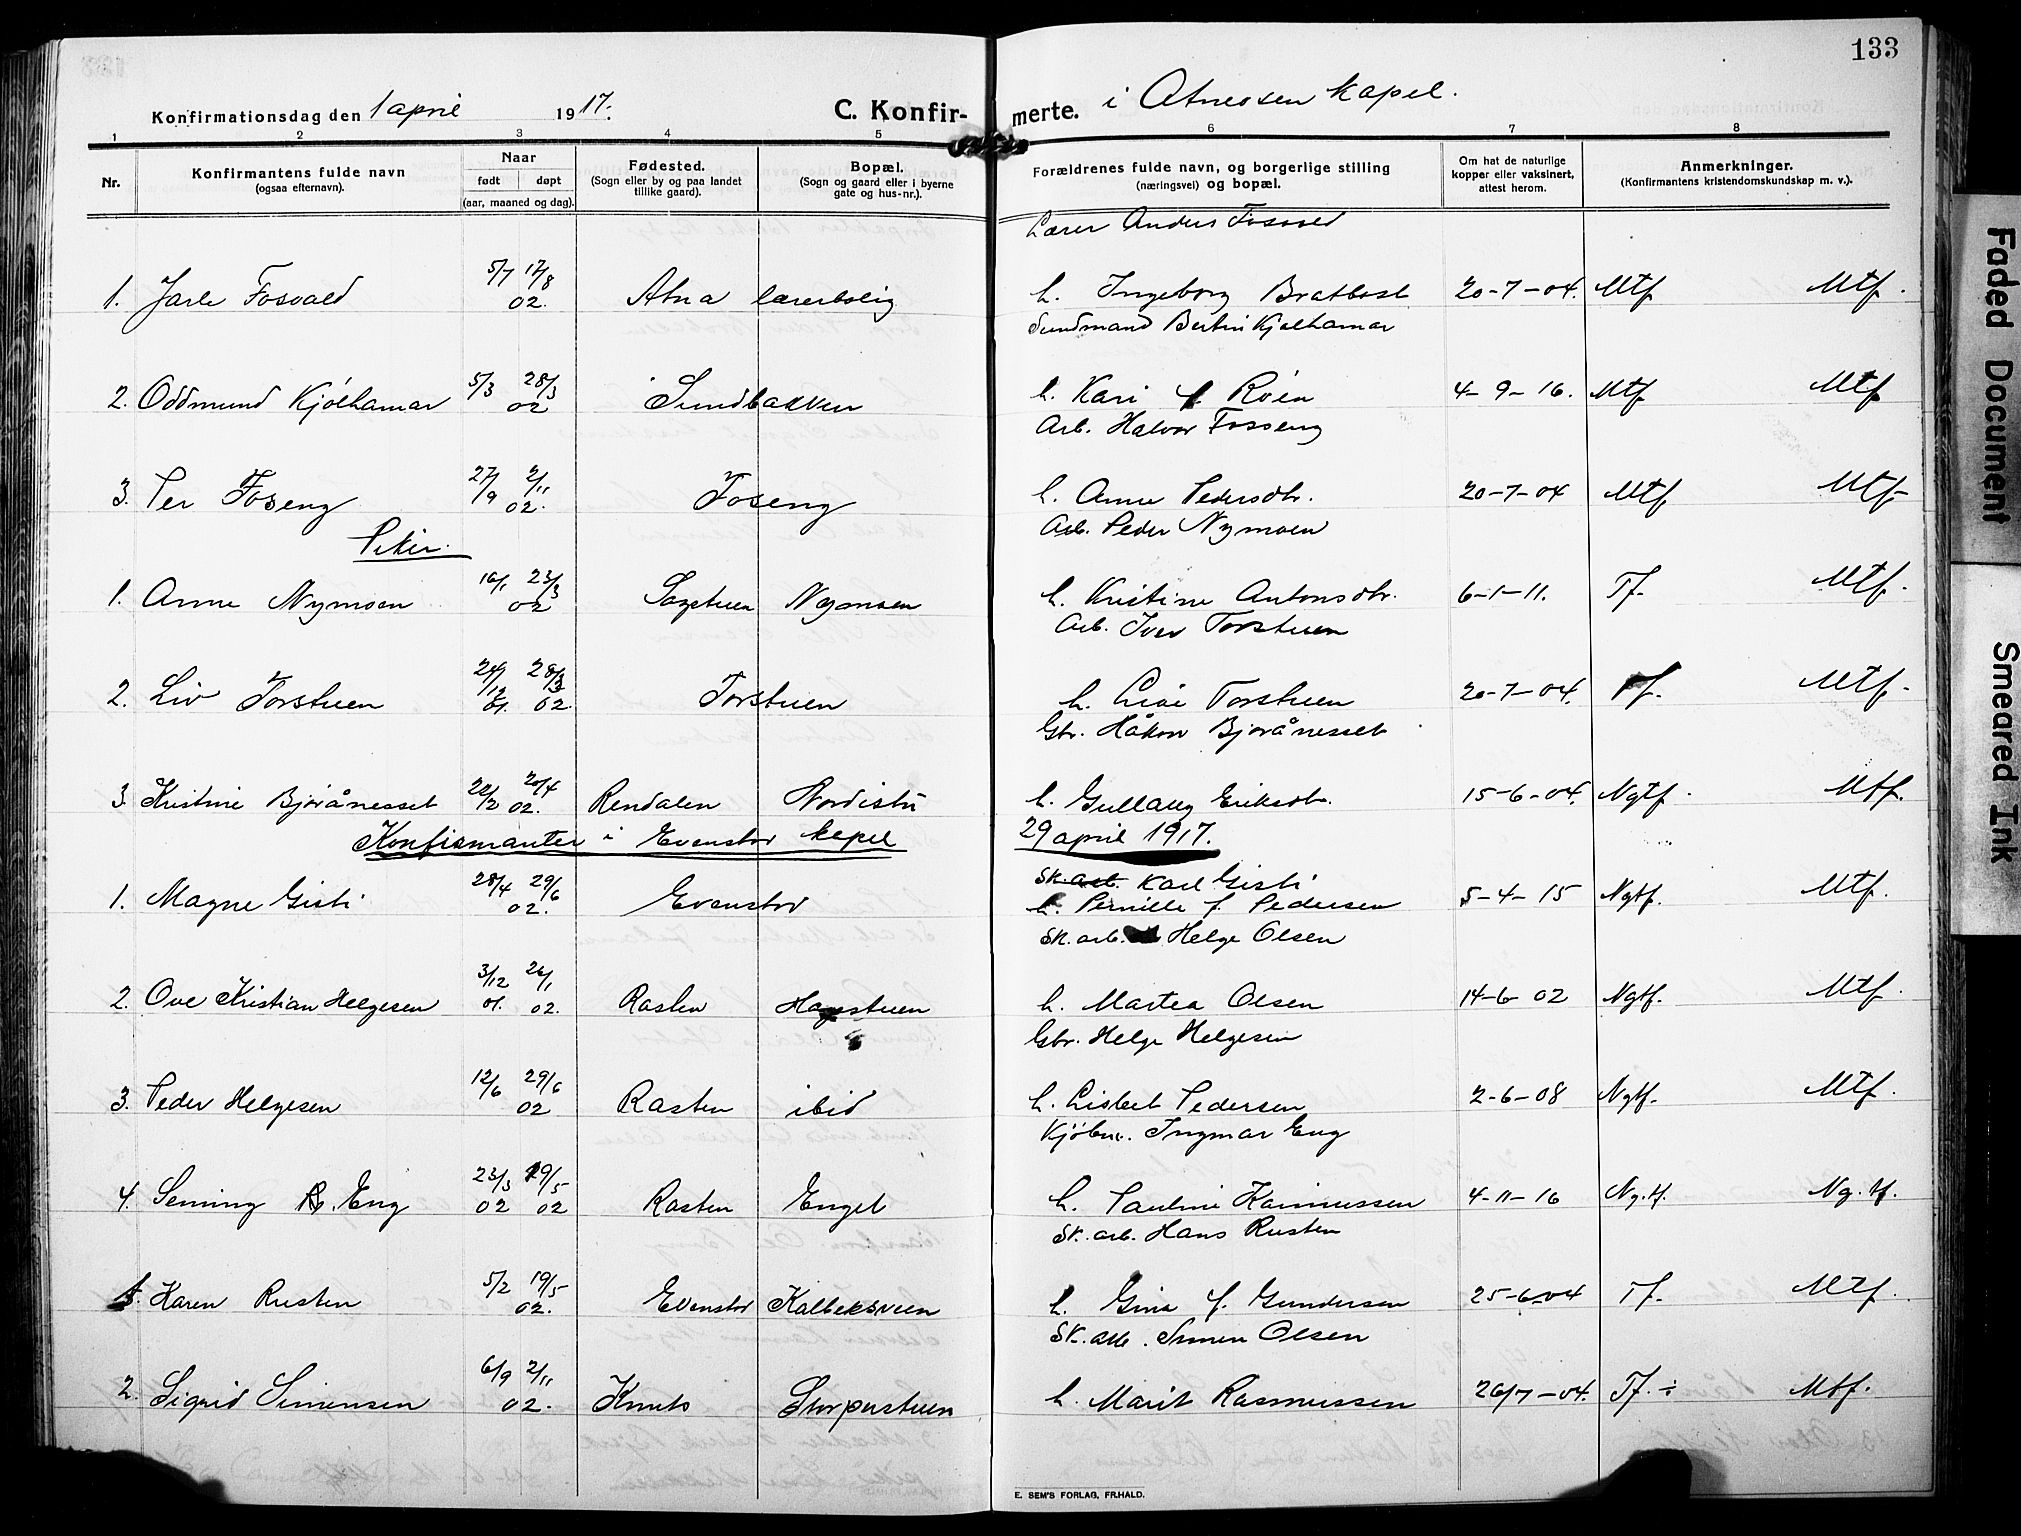 133
Konfirmationsdag den 1 april 1917. C. Konfirmerte. i Atneosen kapel.
1 2 3 4 5 6 7 8
Nr. Konfirmantens fulde navn (ogsaa efternavn). Naar født døpt (aar, maaned og dag). Fødested. (Sogn eller by og paa landet tillike gaard). Bopæl. (Sogn og gaard eller i byerne gate og hus-nr.). Forældrenes fulde navn, og borgerlige stilling (næringsvei) og bopæl. Om hat de naturlige kopper eller vaksinert, attest herom. Anmerkninger. (Konfirmantens kristendomskundskap m. v.).
Lærer Anders Fosvold
1. Jarle Fosvold 5/7 17/8 02. Atna lærerbolig h. Ingeborg Bratbost 20-7-04. Mtf Mtf.
Sundmand Bertin Kjølhamar
2. Oddmund Kjølhamar 5/3 28/3 02 Sundbakken h. Kari f. Røen 4-9-16. Mtf Mtf
Arb. Halvor Fosseng
3. Per Foseng 27/9 2/11 02. Foseng h. Anne Pedersdtr. 20-7-04 Mtf Mtf
Arb. Peder Nymoen
Piker.
1. Anne Nymoen 16/1 23/3 02 Sagstuen Nymoen h. Kristine Antonsdtr. 6-1-11. Tf. Mtf.
Arb. Iver Torstuen
2. Liv Torstuen 24/12 01. 28/3 02 Torstuen h. Live Torstuen 20-7-04. Tf. Mtf.
Gbr. Håkon Bjøråneset
3. Kristine Bjørånesset 22/2 20/4 02. Rendalen Nordistu h. Gullaug Eriksdtr. 15-6-04. Ngtf. Mtf.
Konfirmanter i Evenstad kapel 29 april 1917.
Sk. arb. Karl Gisti
1. Magne Gisti 28/4 29/6 02. Evenstad h. Pernille f. Pedersen 5-4-15 Ngtf. Mtf.
Sk. arb. Helge Olsen
2. Ove Kristian Helgesen 3/12 01. 26/1 02. Rasten Hagestuen h. Martea Olsen 14-6-02 Ngtf. Mtf.
Gbr. Helge Helgesen
3. Peder Helgesen 12/6 29/6 02 Rasten ibid h. Lisbet Pedersen 2-6-08 Ngtf. Mtf.
Kjøbm. Ingmar Eng
4. Seming R. Eng 23/3 02 19/5 02 Rasten Enget h. Pauline Rasmussen 4-11-16 Ng.tf. Ng.tf.
Sk. arb. Hans Rusten
1. Karen Rusten 5/2 19/5 02. Evenstad Kalbeksveen h. Gina f. Gundersen 25-6-04 Tf. Mtf.
Sk. arb. Simen Olsen
2. Sigrid Simensen 6/9 2/11 02. Knuts Storperstuen h. Marit Rasmussen 26/7-04. Tf. ÷ Mtf.
E. SEM'S FORLAG, FR.HALD.
Faded Document
Smeared Ink